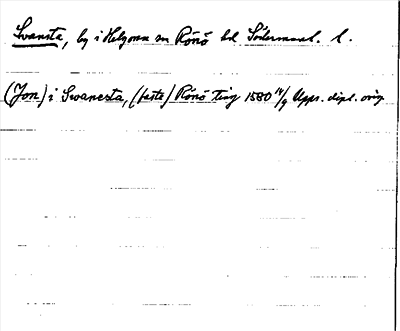 Svansta, by i Helgona sn Rönö hd Södermanl. l.
(Jon) i Swanesta, (faste) Rönö ting 1580 14/9 Upps. dipl. orig.